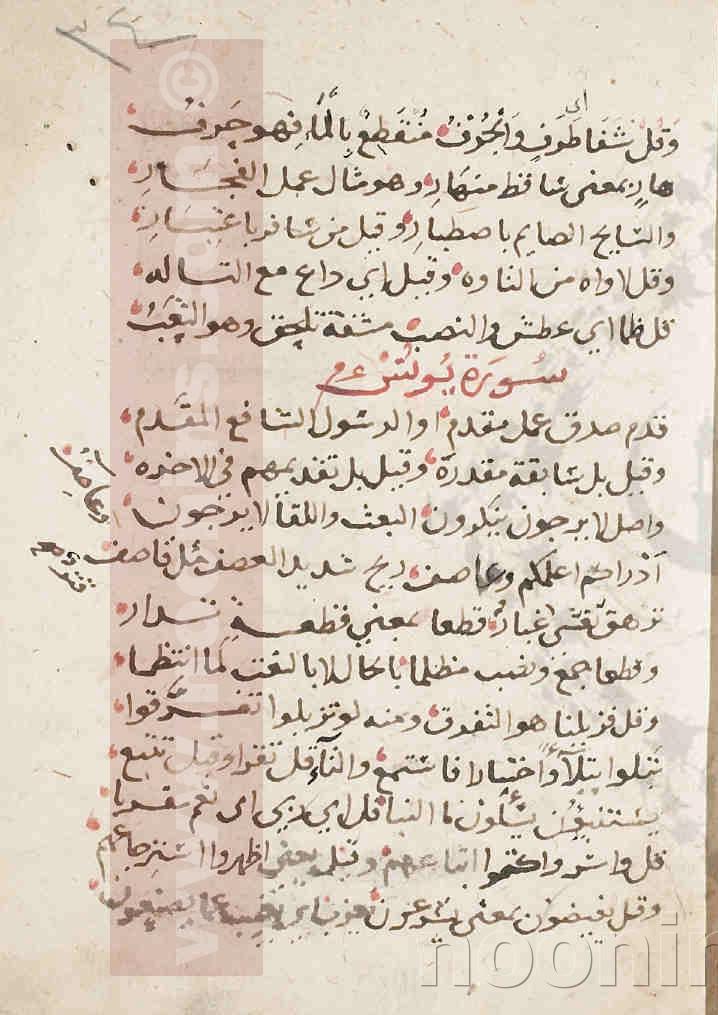 ٣٤
وَقُلْ شَفَا طَرَفٍ وَالْجُرْفُ مُنْقَطِعٌ بِالْمَاءِ فهو جَرفُ
أى
هارٍ بمعنى ساقط منهار وهو مثال عمل الفجار
والسايح الصايم باصطبار وقيل من سافر باعتبار
وقل لاواه من التاوه وقيل اي داع مع التاله
قل ظما اي عطش والنصب مشقة تلحق وهو التعب
سورة يونس عم
قدم صدق عمل مقدم او الرسول الشافع المقدم
وقيل بل سابقة مقدرة وقيل بل تقديمهم في الاخره
واصل لا يرجون ينكرون البعث واللقا لا يرجونا
أدراكم اعلمكم وعاصف ريح شديد العصف مثل قاصف
وعاصف
ترهق تغشى اغبار قطعا بمعنى قطعة تدار
وقطعا جمع ونصب مظلما بالحال لا بالنعت لما انتظما
وقل فزيلنا هو التفرق ومنه لو تزيلوا تفرقوا
تبلوا ابتلاءً واختبارا فاستمع والتا قل تقرا وقيل تتبع
يستنبؤن يسئلون ما النبا قل اي وربي اى نعم
قل واسروا اكتموا اتباعهم وقيل بعضى اظهروا استرجاعهم
وقل تفيضون بمعنى تسرعون يعزب اي يغيب عما يصنعون
www.
©
noonin